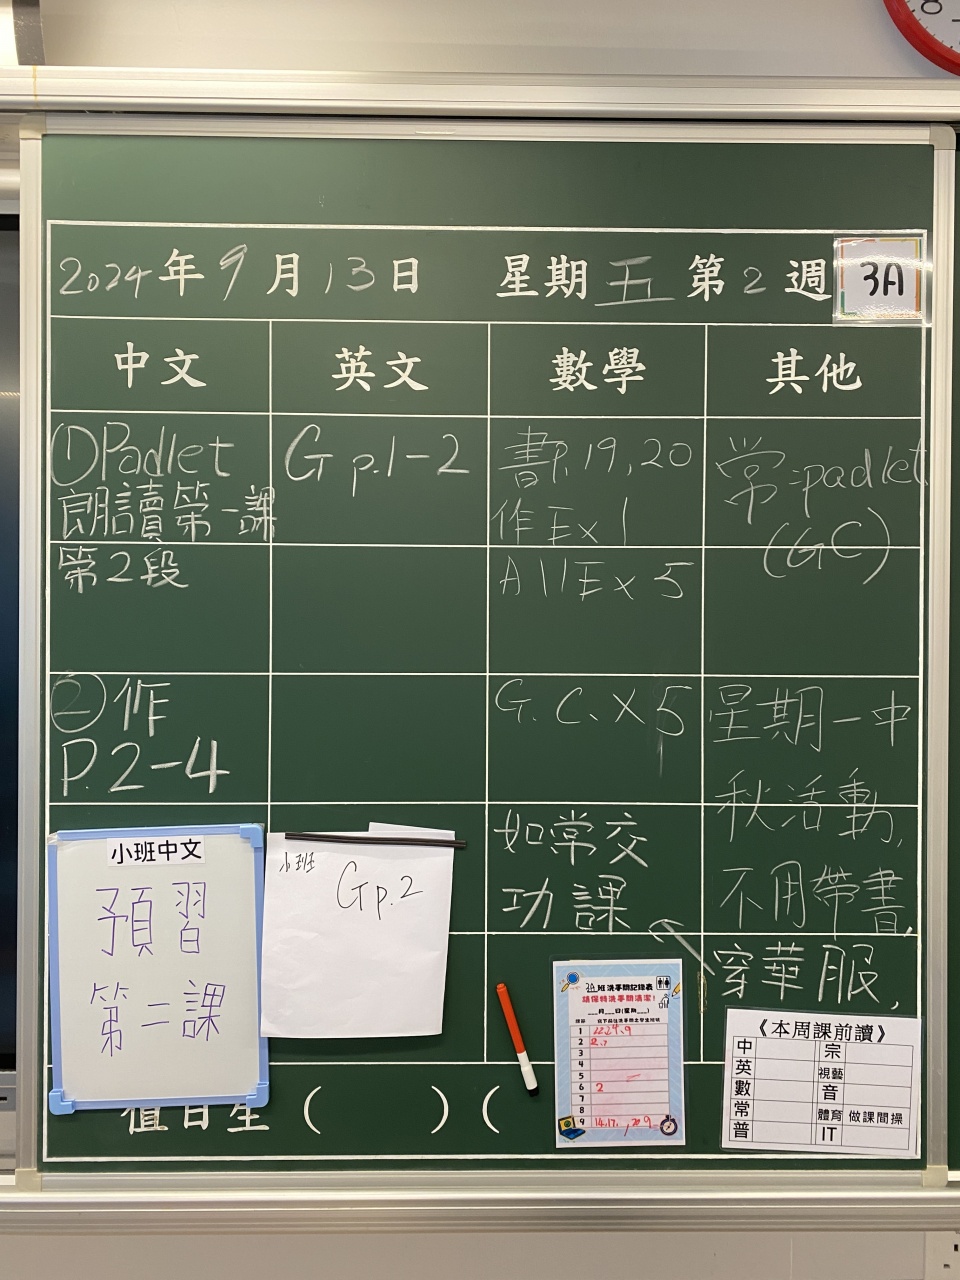 2024年9月13日 星期五 第2週 3A
中文 英文 數學 其他
①Padlet
朗讀第一課
第2段
②作
P.2-4
G p.1-2
書P.19,20
作Ex1
A11Ex5
G.C.X5
如常交
功課
常:padlet
(GC)
星期一中
秋活動,
不用帶書,
穿華服,
小班中文
預習
第二課
小班
Gp.2
3A班洗手間記錄表
請保持洗手間清潔!
___月___日(星期___)
1
2
3
4
5
6 2
7
8
9
《本周課前讀》
中 宗
英 視藝
數 音
常 體育 做課間操
普 IT
值日生( )(